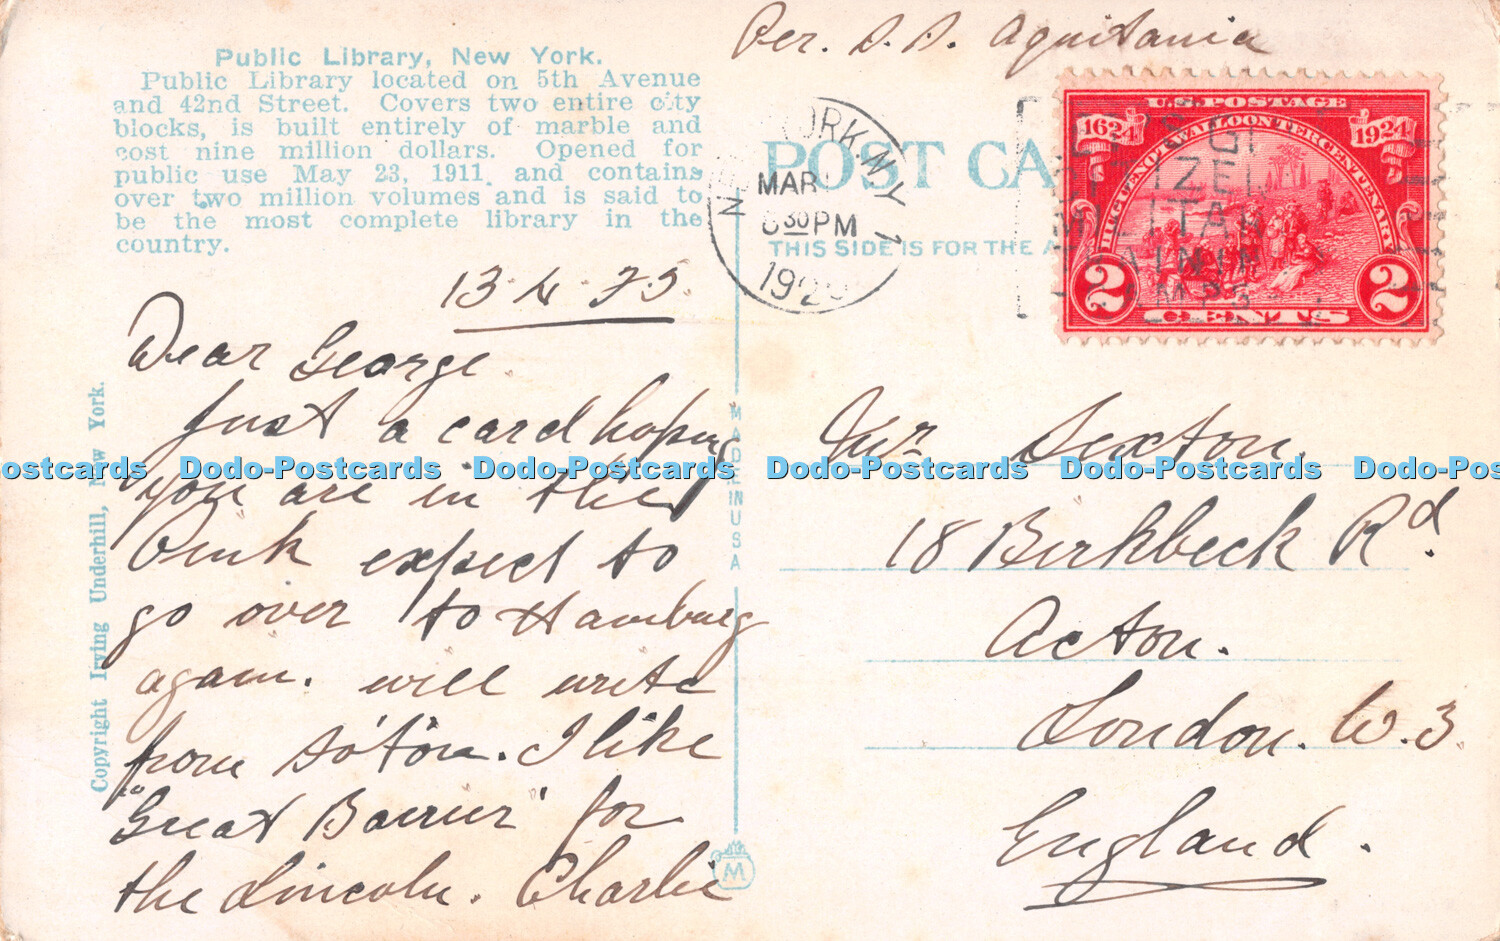 Per. S.S. Aquitania
Public Library, New York.
Public Library located on 5th Avenue
and 42nd Street. Covers two entire city
blocks, is built entirely of marble and
cost nine million dollars. Opened for
public use May 23, 1911, and contains
over two million volumes and is said to
be the most complete library in the
country.
Copyright Irving Underhill, New York.
Dear George.
Just a card hoping
you are in the
Pink expect to
go over to Hamburg
again. will write
from So'ton. I like
"Great Barrier" for
the Lincoln. Charlie
MADE IN USA
M
POST CA
THIS SIDE IS FOR THE A
NEW YORK, N.Y.
MAR
30 PM
192
U.S. POSTAGE
1624
1924
HUGUENOT WALLOON TERCENTENARY
2
2
CENTS
Mr Sexton.
18 Birkbeck Rd.
Acton.
London. W.3.
England.
ostcards Dodo-Postcards Dodo-Postcards Dodo-Postcards Dodo-Postcards Dodo-Pos